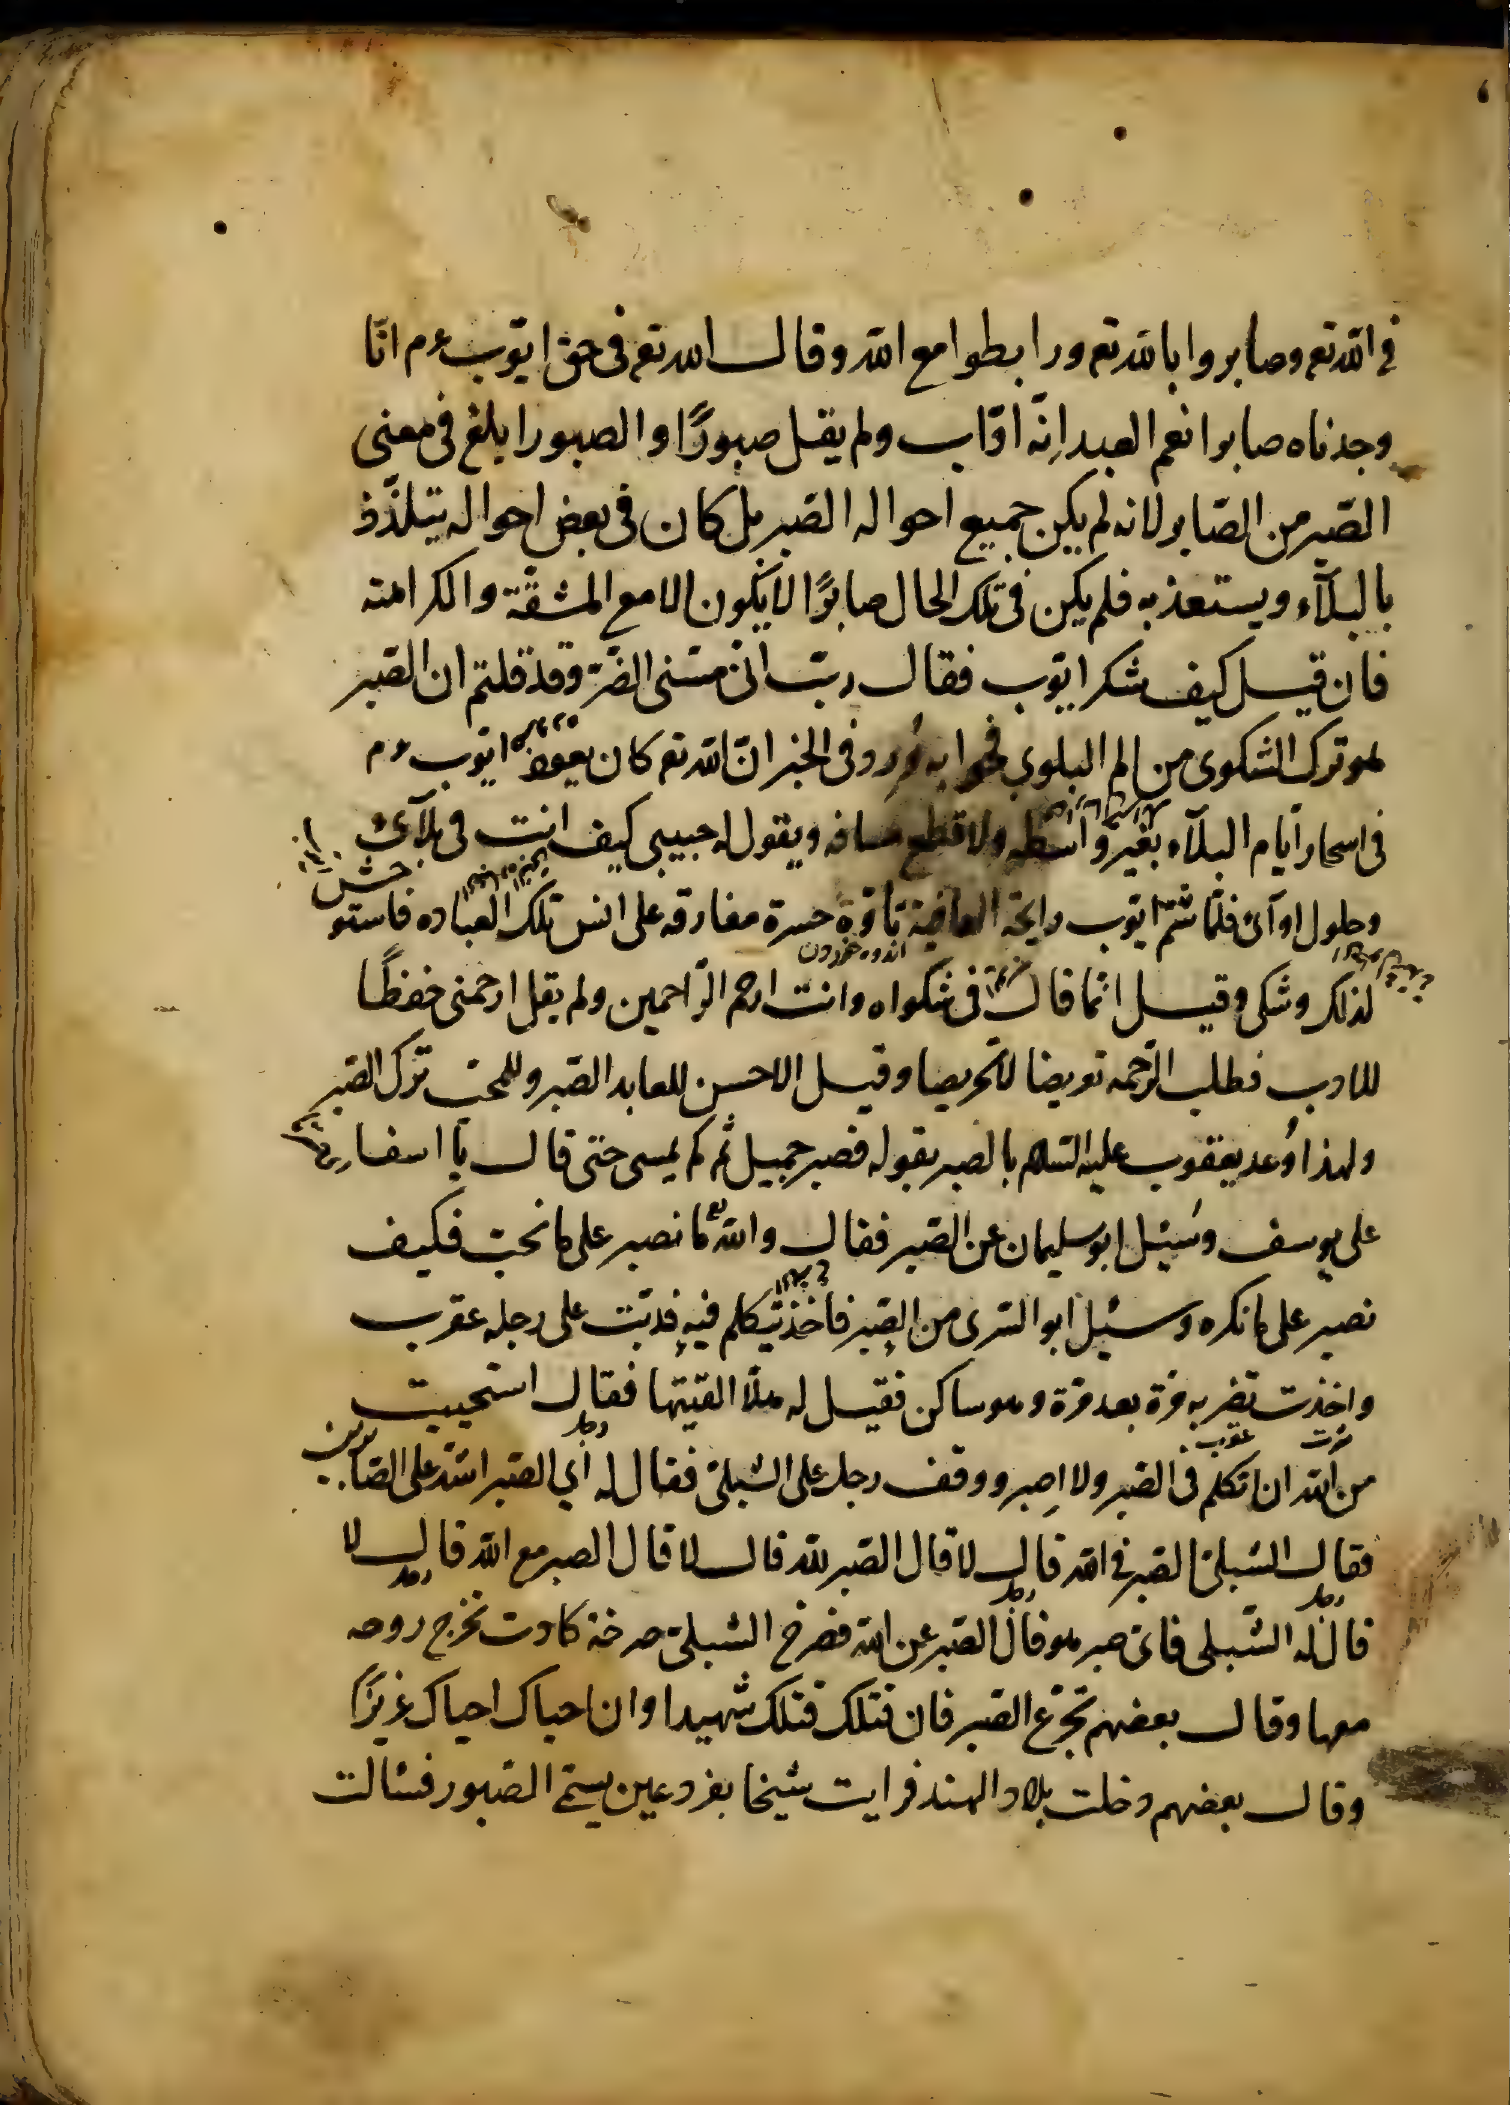 في الله تع وصابروا بالله تع ورابطوا مع الله وقال الله تع فى حق ايّوب ءم انّا
وجدناه صابرا نعم العبد اِنّه اوّاب ولم يقل صبورًا والصبور ابلغ فى معنى
الصّبر من الصّابر لانه لم يكن جميع احواله الصّبر بل كان فى بعض احواله يتلذّذ
بالبلآء ويستعذ به فلم يكن فى تلك الحال صابرًا لا يكون الا مع المشقّة والكراهته
فان قيل كيف شكر ايّوب فقال ربّ انّى مسّنى الضّرّ وقد قلتم ان الصّبر
هو ترك الشكوى من الم البلوى فجوابه وُرد فى الخبر انّ الله تع كان ايّوب ءم
فى اسحار ايّام البلآء بغير واسطه ولا قطع مسافه ويقول له حبيبى كيف انت فى بلآئى
وحلول اوآئى فلمّا شمّ ايّوب رايحة العافية تأوّه حسرة مفارقه على انس تلك العباده فاستوحش
اندوه خوردن
لذلك وشكى وقيل انّما قال فى شكواه وانت ارحم الرّاحمين ولم يقل ارحمنى حفظًا
للادب فطلب الرّحمه تعريضا لا تحريصا وقيل الاحسن للعابد الصّبر وللمحبّ ترك الصّبر
ولهذا وُعد يعقوب عليه السّلام بالصبر بقوله فصبر جميل ثمّ لم يمسى حتى قال يا اسفا
على يوسف وسُئيل ابو سليمان عن الصّبر فقال والله تع ما نصبر على ما نحبّ فكيف
نصبر على ما نكره وسئيل ابو السّرى من الصّبر فاخذ يتكلم فيه فدبّت على رجله عقرب
واخذت تضربه مرّة بعد مرّة وهو ساكن فقيل له هلّا القيتها فقال استحييت
من الله ان اتكلم فى الصّبر ولا اصبر ووقف رجل على الشّبلىّ فقال له أي الصّبر اشدّ على الصّابرين
فقال الشّبلىّ الصّبر فى الله قال لا قال الصّبر لله قال لا قال الصبر مع الله قال لا
قال له الشّبلى فاىّ صبر هو قال الصّبر عن الله فصرخ الشّبلىّ صرخة كادت تخرج روحه
معها وقال بعضهم تجرّع الصّبر فان قتلك قتلك شهيدا وان احياك احياك عزيزًا
وقال بعضهم دخلت بلاد الهند فرايت شيخا بفرد عين يسمّى الصّبور فسئالت